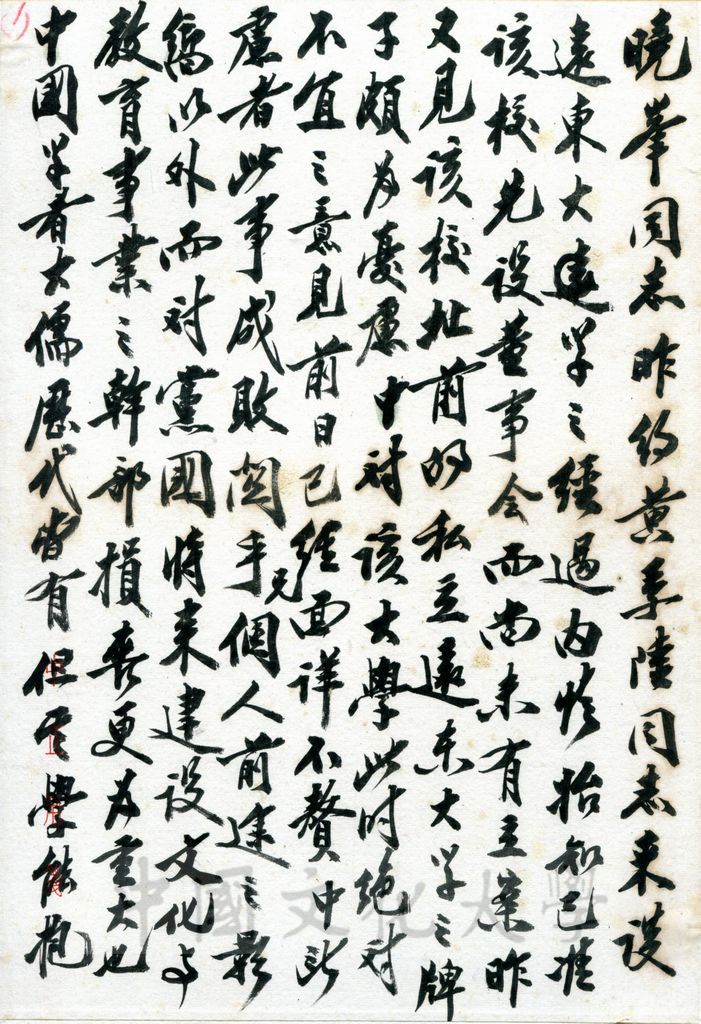 曉峯同志昨約黃季陸同志來談
遠東大学之經過内情始知已准
該校先設董事会而尚未有立案昨
又見該校址前的私立遠东大学之牌
子頗為憂慮中对該大學此时絶对
不宜之意見前日已經面詳不贅中所
慮者此事成敗関乎兄個人前途之影
響以外而对黨國將来建设文化与
教育事業之幹部損喪更為重大也
中國学者大儒歷代皆有但其學能抱
中國文化大學